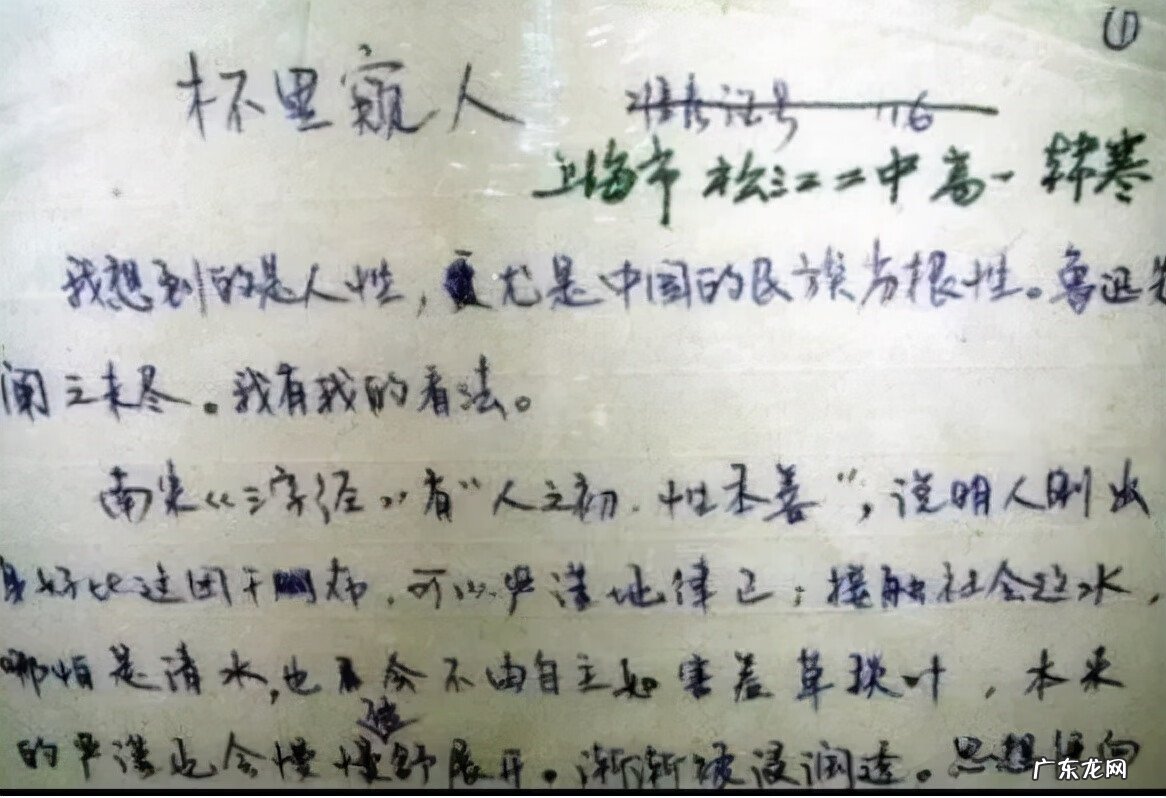 ①
杯里窥人
准考证号 116
上海市松江二中高一 韩寒
我想到的是人性,尤是中国的民族劣根性。鲁迅先
阐之未尽。我有我的看法。
南宋《三字经》有"人之初,性本善",说明人刚出
好比这团干布,可以严谨地律己;接触社会这水,
哪怕是清水,也会不由自主如害羞草叶,本来
的严谨也会慢慢舒展开。渐渐被浸润透。思想便向
广东龙网